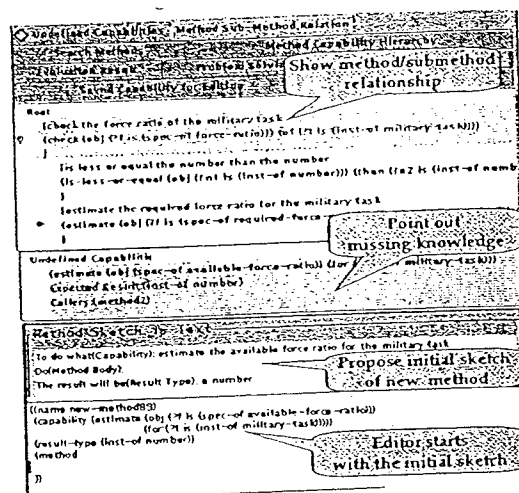 Undefined Capabilities Method Sub-Method Relation
Search Method Method Capability Hierarchy
Problem
Saved Capability for Editing
Show method/submethod
relationship
Root
[check the force ratio of the military task
(check (obj (?f is (spec-of force-ratio))) (of (?t is (inst-of military-task))))
]
[is less or equal the number than the number
(is-less-or-equal (obj (?n1 is (inst-of number))) (then (?n2 is (inst-of numb
]
[estimate the required force ratio for the military task
(estimate (obj (?f is (spec-of required-force-
]
Point out
missing knowledge
Undefined Capabilities
(estimate (obj (spec-of available-force-ratio)) (for military-task)))
Expected Result: (inst-of number)
Callers: (method2)
Method Sketch In Text
To do what(Capability): estimate the available force ratio for the military task
Do(Method Body):
The result will be(Result Type): a number
Propose initial sketch
of new method
((name new-method89)
(capability (estimate (obj (?f is (spec-of available-force-ratio))
(for (?t is (inst-of military-task)))))
(result-type (inst-of number))
(method
))
Editor starts
with the initial sketch